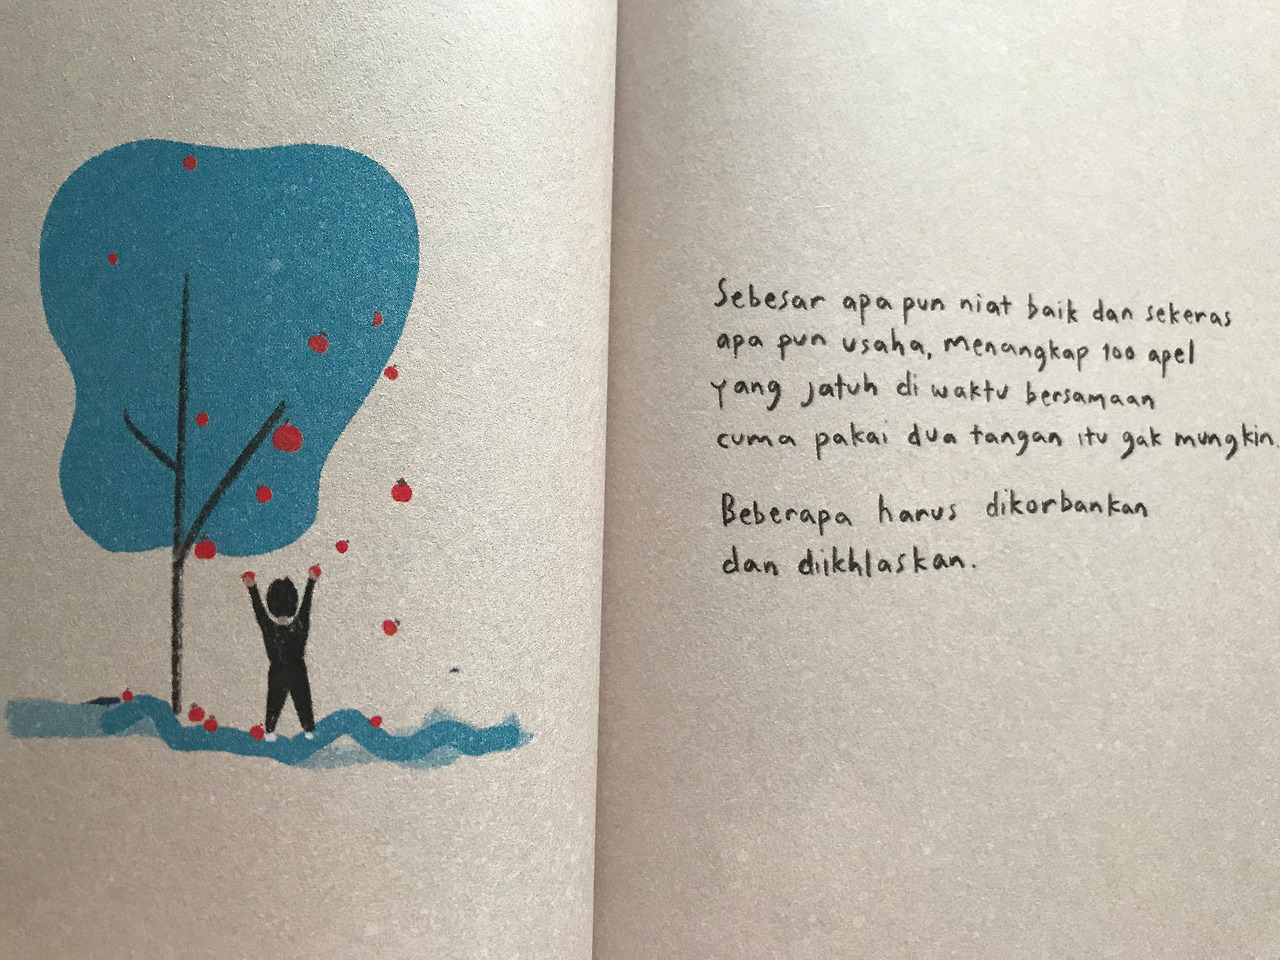 Sebesar apa pun niat baik dan sekeras
apa pun usaha, menangkap 100 apel
yang jatuh di waktu bersamaan
cuma pakai dua tangan itu gak mungkin.
Beberapa harus dikorbankan
dan diikhlaskan.